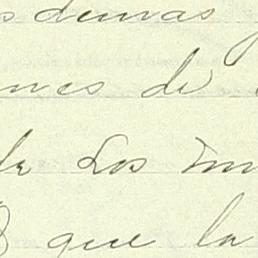 demas
nes de
de Los
que la